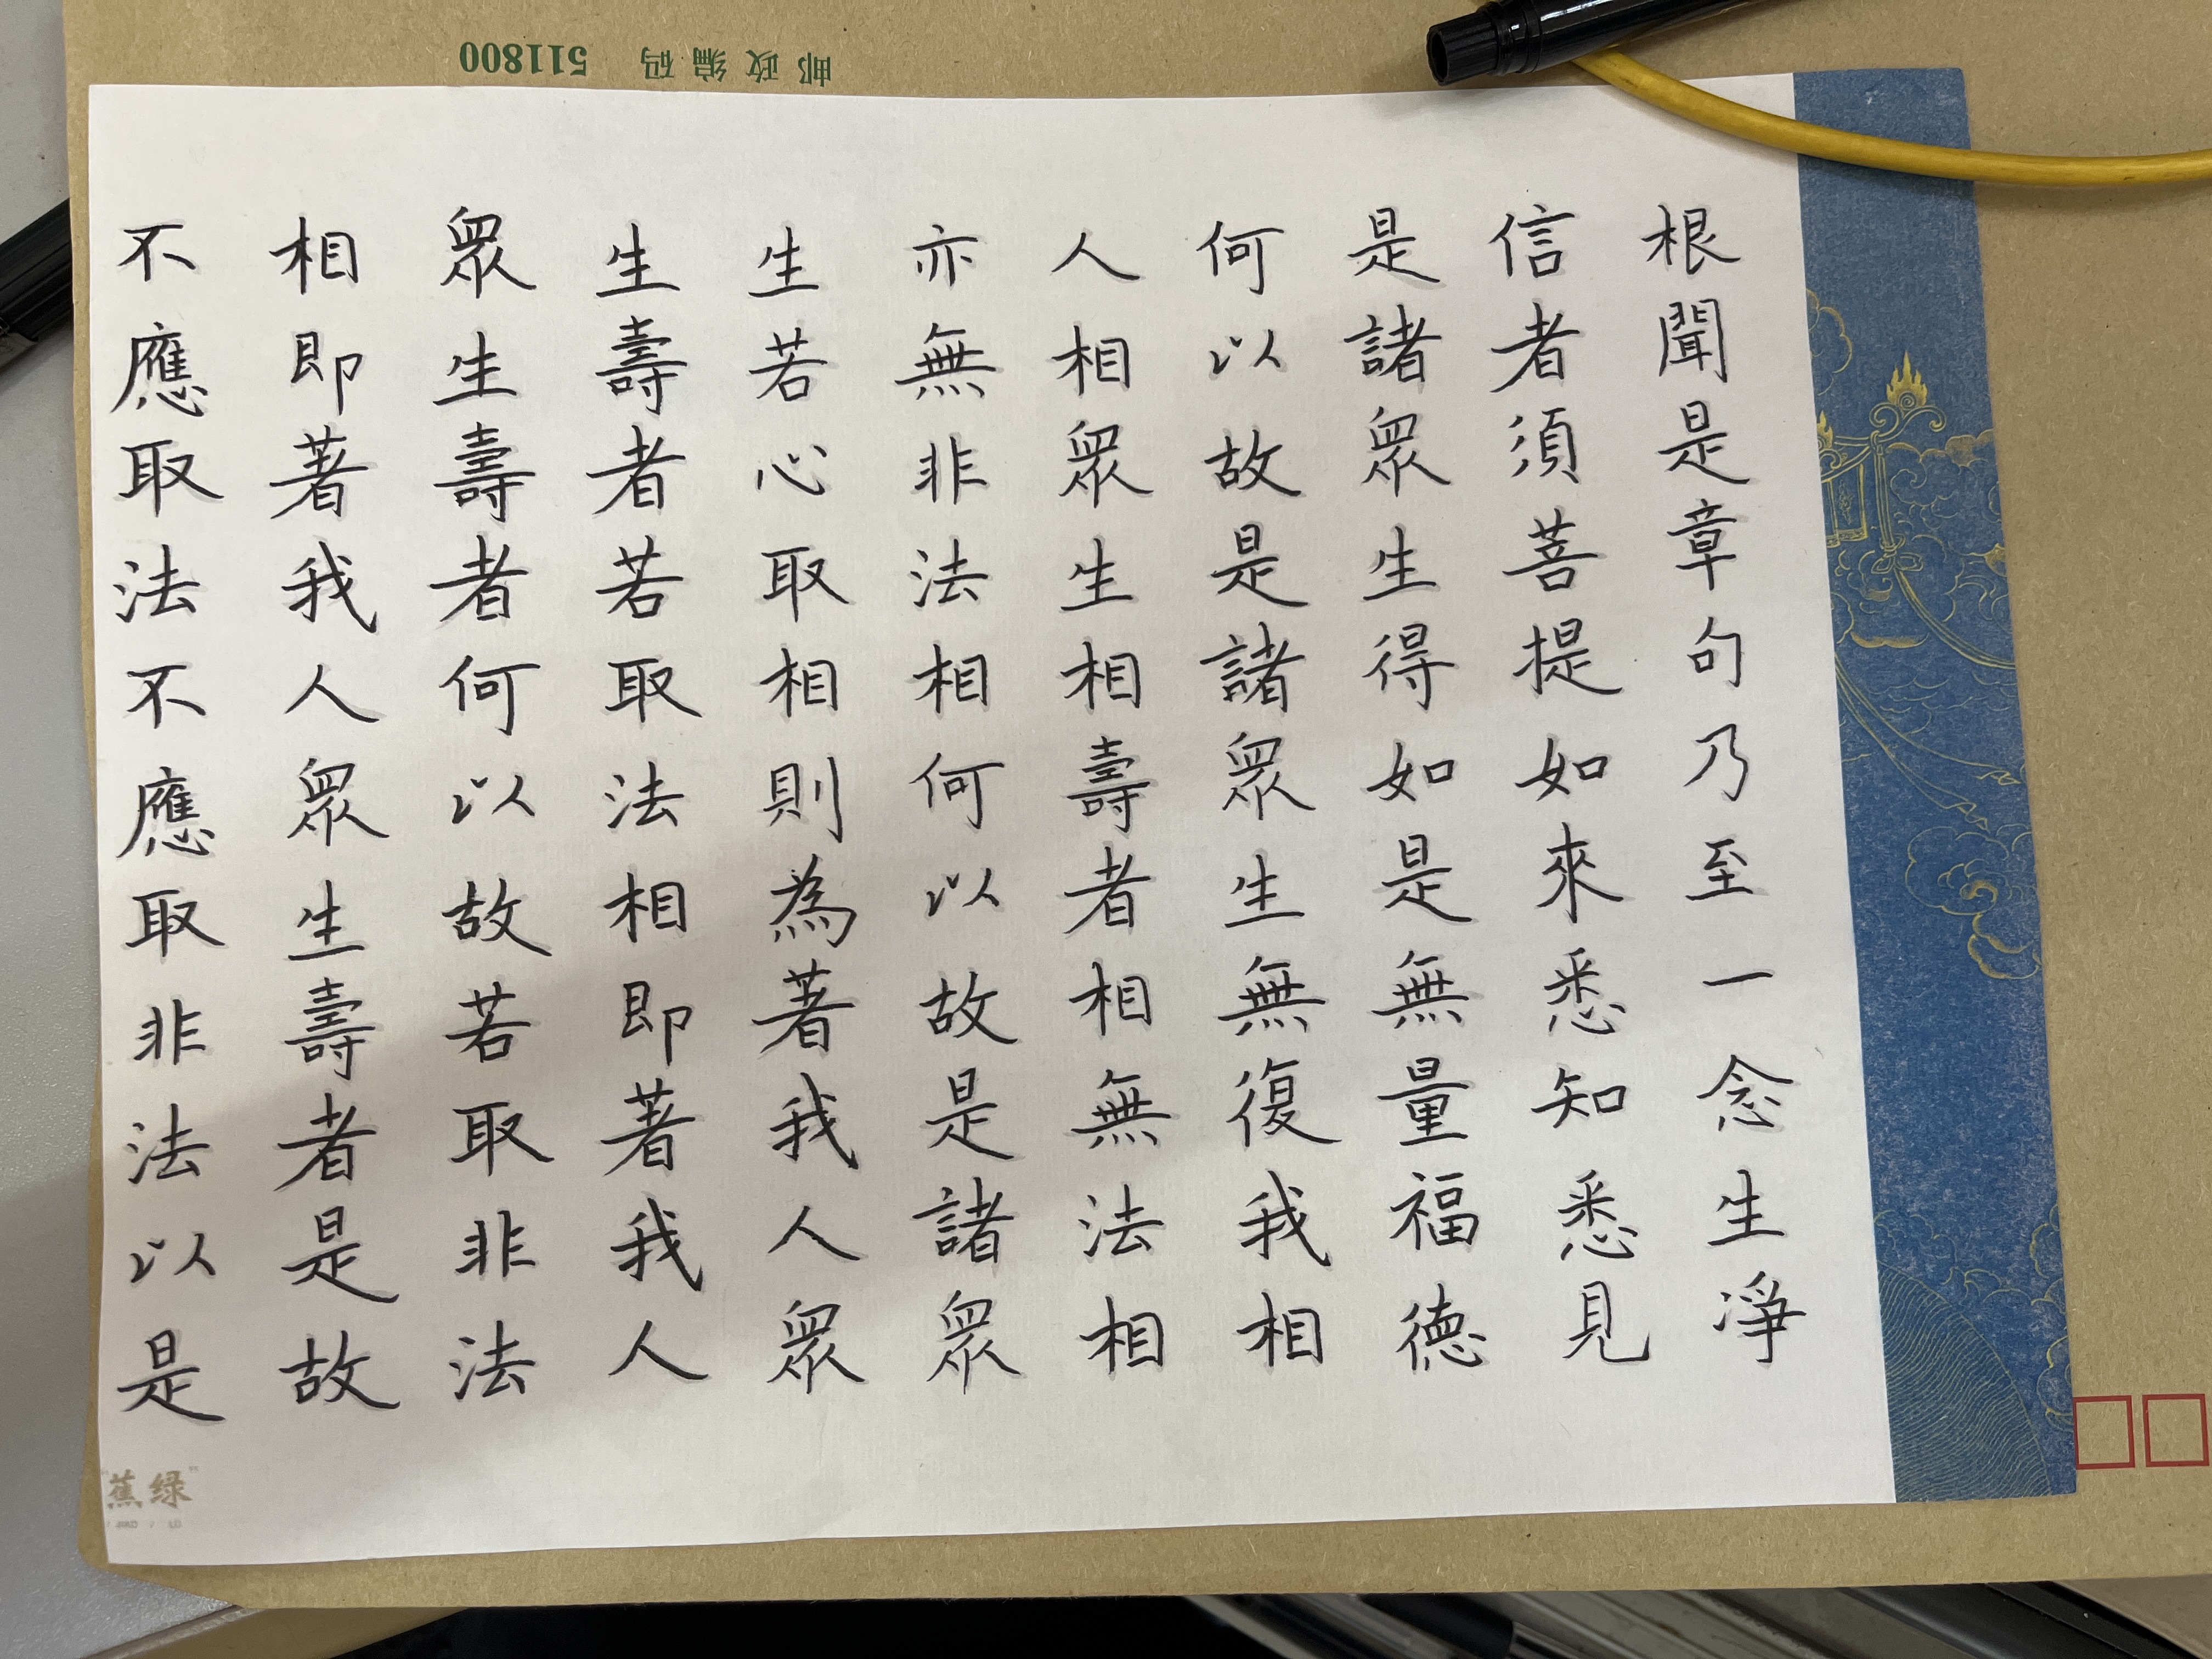 根聞是章句乃至一念生淨
信者須菩提如來悉知悉見
是諸眾生得如是無量福德
何以故是諸眾生無復我相
人相眾生相壽者相無法相
亦無非法相何以故是諸眾
生若心取相則為著我人眾
生壽者若取法相即著我人
眾生壽者何以故若取非法
相即著我人眾生壽者是故
不應取法不應取非法以是
蕉绿
邮政编码 511800